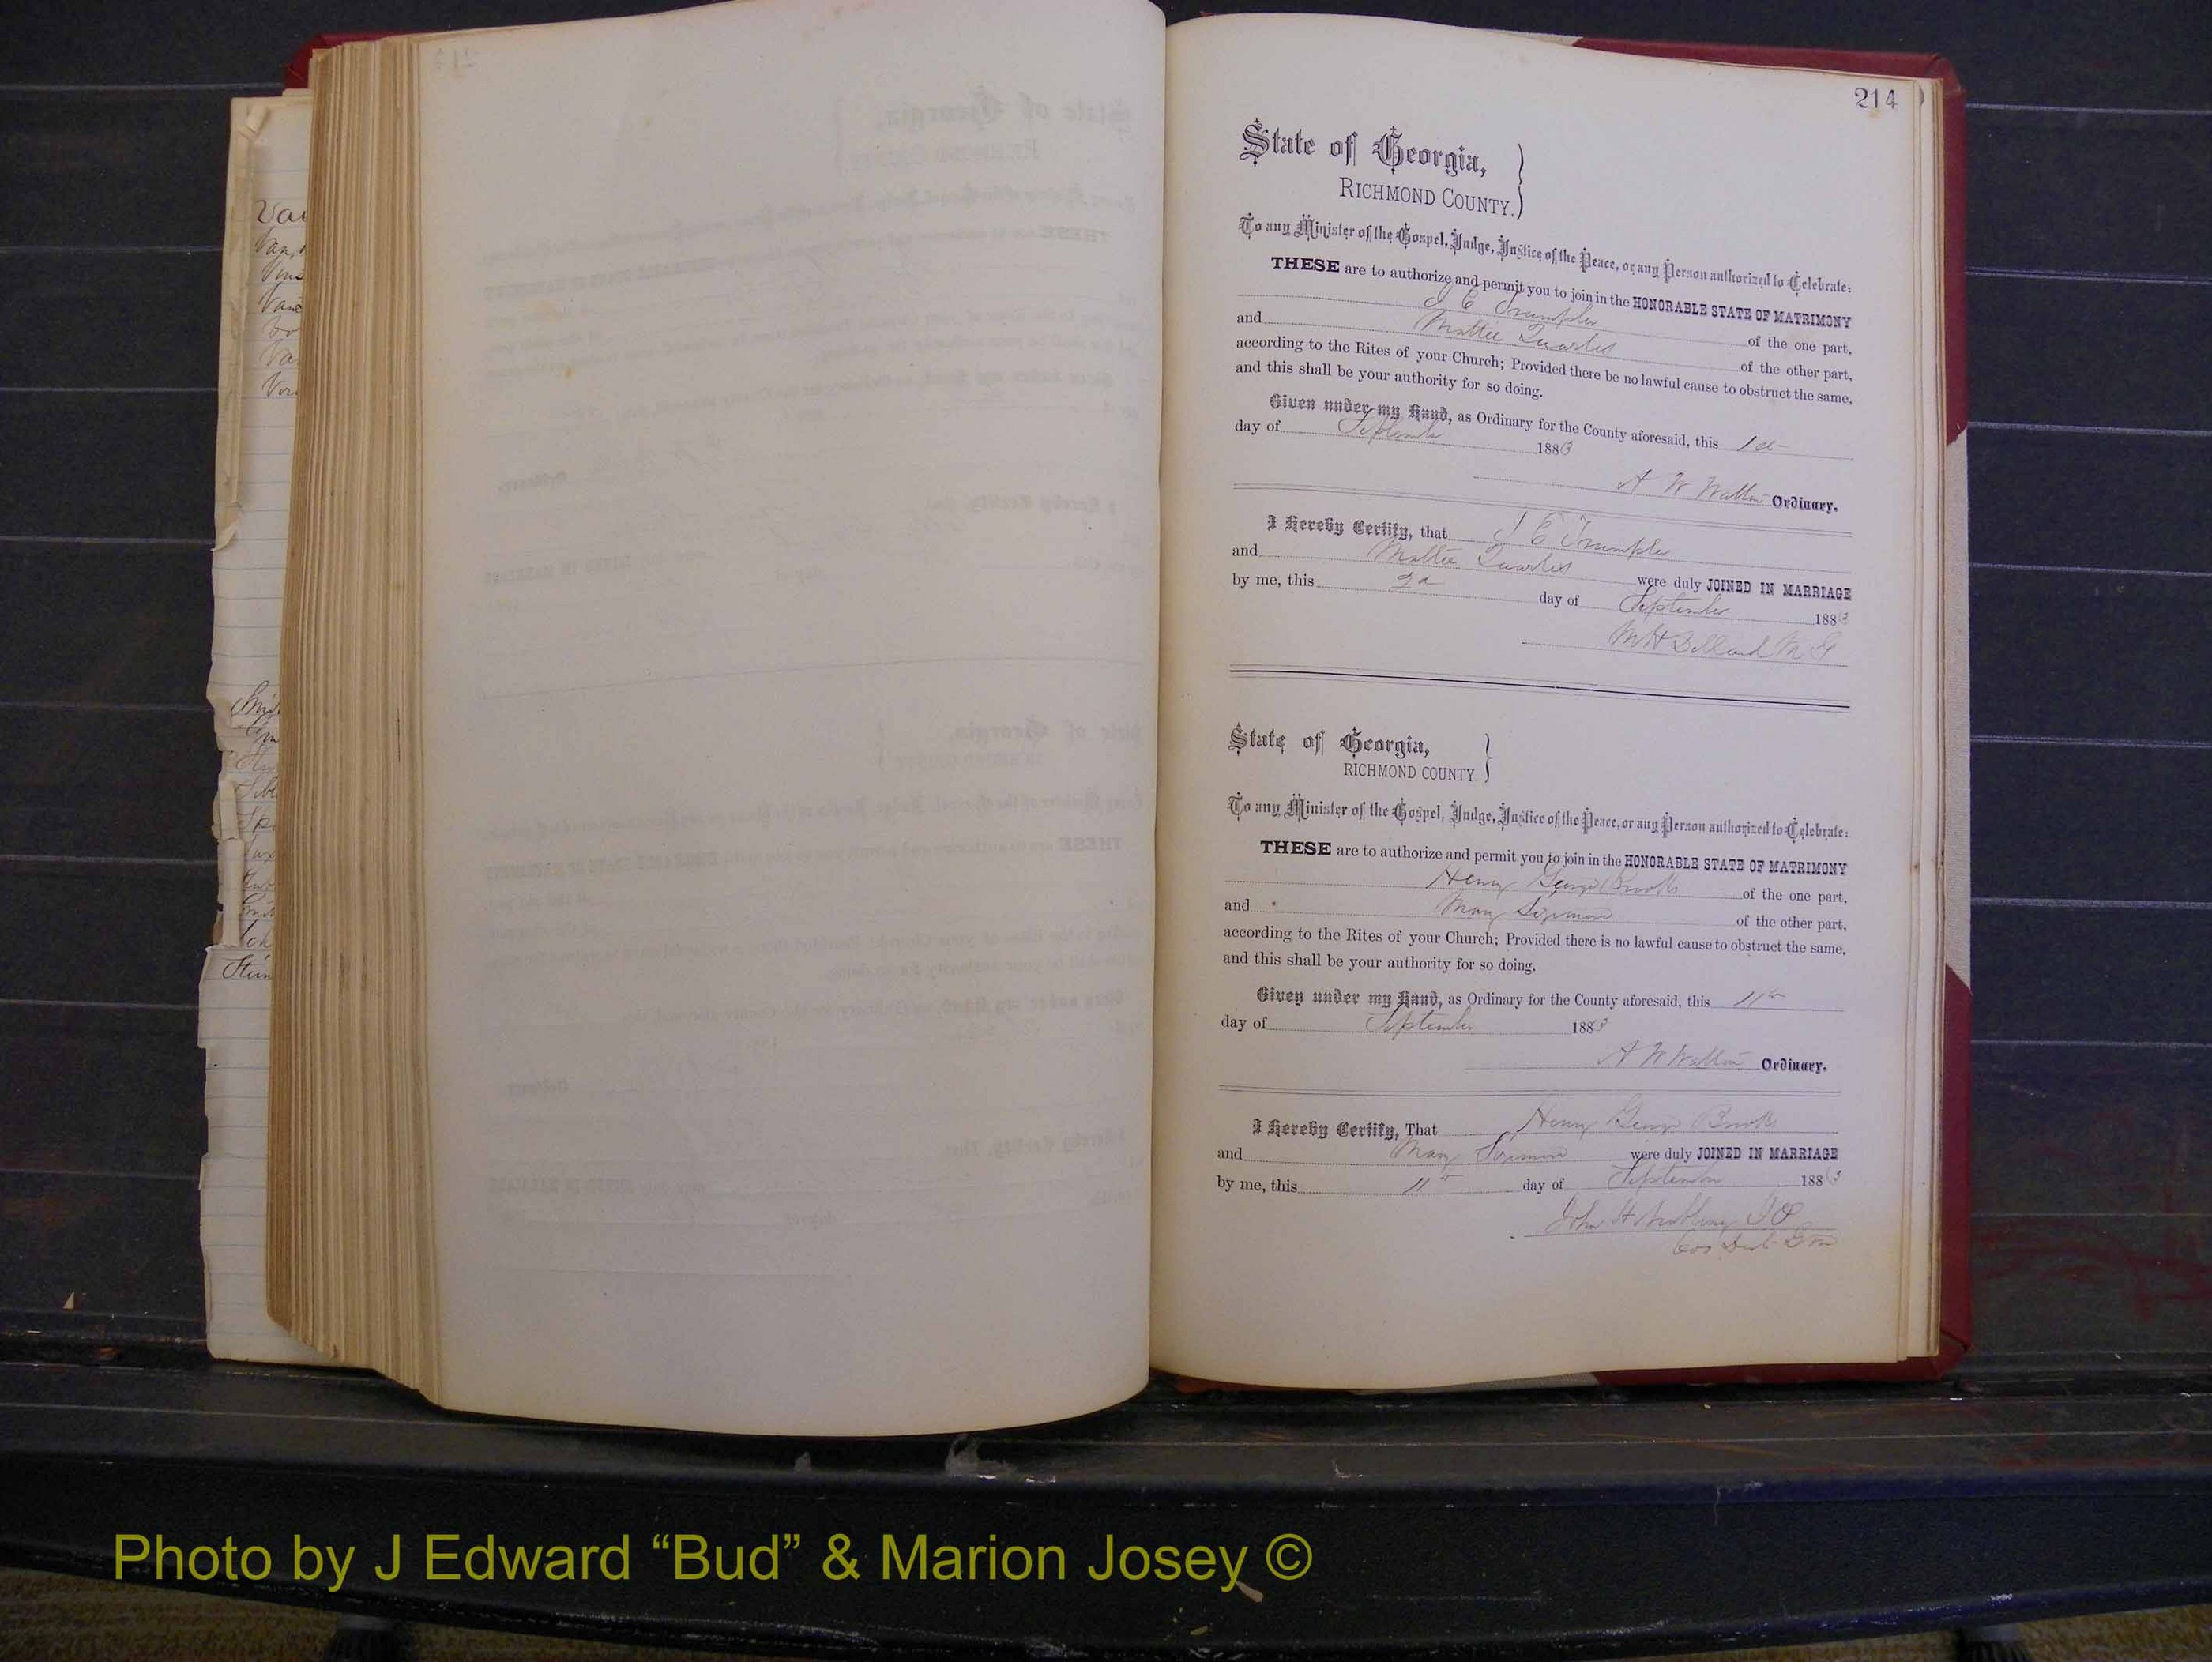 214
State of Georgia,
RICHMOND COUNTY.
To any Minister of the Gospel, Judge, Justice of the Peace, or any Person authorized to Celebrate:
THESE are to authorize and permit you to join in the HONORABLE STATE OF MATRIMONY
J E Trumpler of the one part,
and Mattie Quarles of the other part,
according to the Rites of your Church; Provided there be no lawful cause to obstruct the same,
and this shall be your authority for so doing.
Given under my Hand, as Ordinary for the County aforesaid, this 1st
day of September 1883
A W Walton Ordinary.
I Hereby Certify, that J E Trumpler
and Mattie Quarles were duly JOINED IN MARRIAGE
by me, this 2d day of September 1883
M H Dillard M G
State of Georgia,
RICHMOND COUNTY
To any Minister of the Gospel, Judge, Justice of the Peace, or any Person authorized to Celebrate:
THESE are to authorize and permit you to join in the HONORABLE STATE OF MATRIMONY
Henry George Brooks of the one part,
and May of the other part,
according to the Rites of your Church; Provided there is no lawful cause to obstruct the same,
and this shall be your authority for so doing.
Given under my Hand, as Ordinary for the County aforesaid, this 11th
day of September 1883
A W Walton Ordinary.
I Hereby Certify, That Henry George Brooks
and May were duly JOINED IN MARRIAGE
by me, this 11th day of September 1883
John H
Photo by J Edward “Bud” & Marion Josey ©